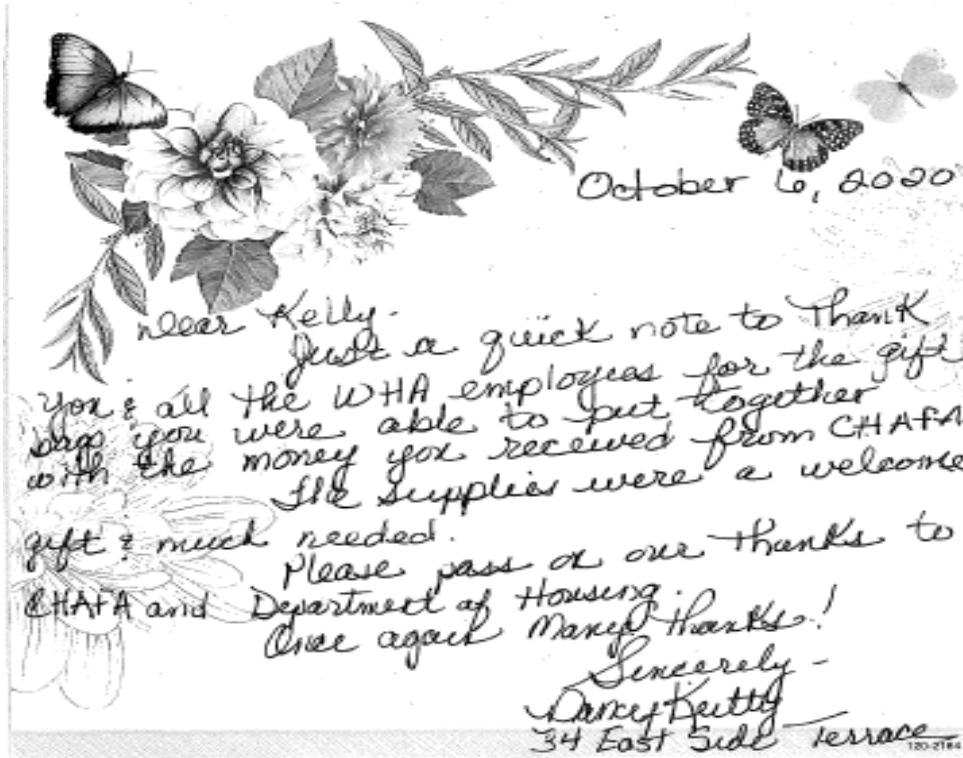 October 6, 2020
Dear Kelly-
Just a quick note to Thank
You & all the WHA employees for the gift
bags you were able to put together
with the money you received from CHAFA
The supplies were a welcome
gift & much needed.
Please pass on our thanks to
CHAFA and Department of Housing.
Once again Many thanks!
Sincerely-
34 East Side Terrace
120-2184